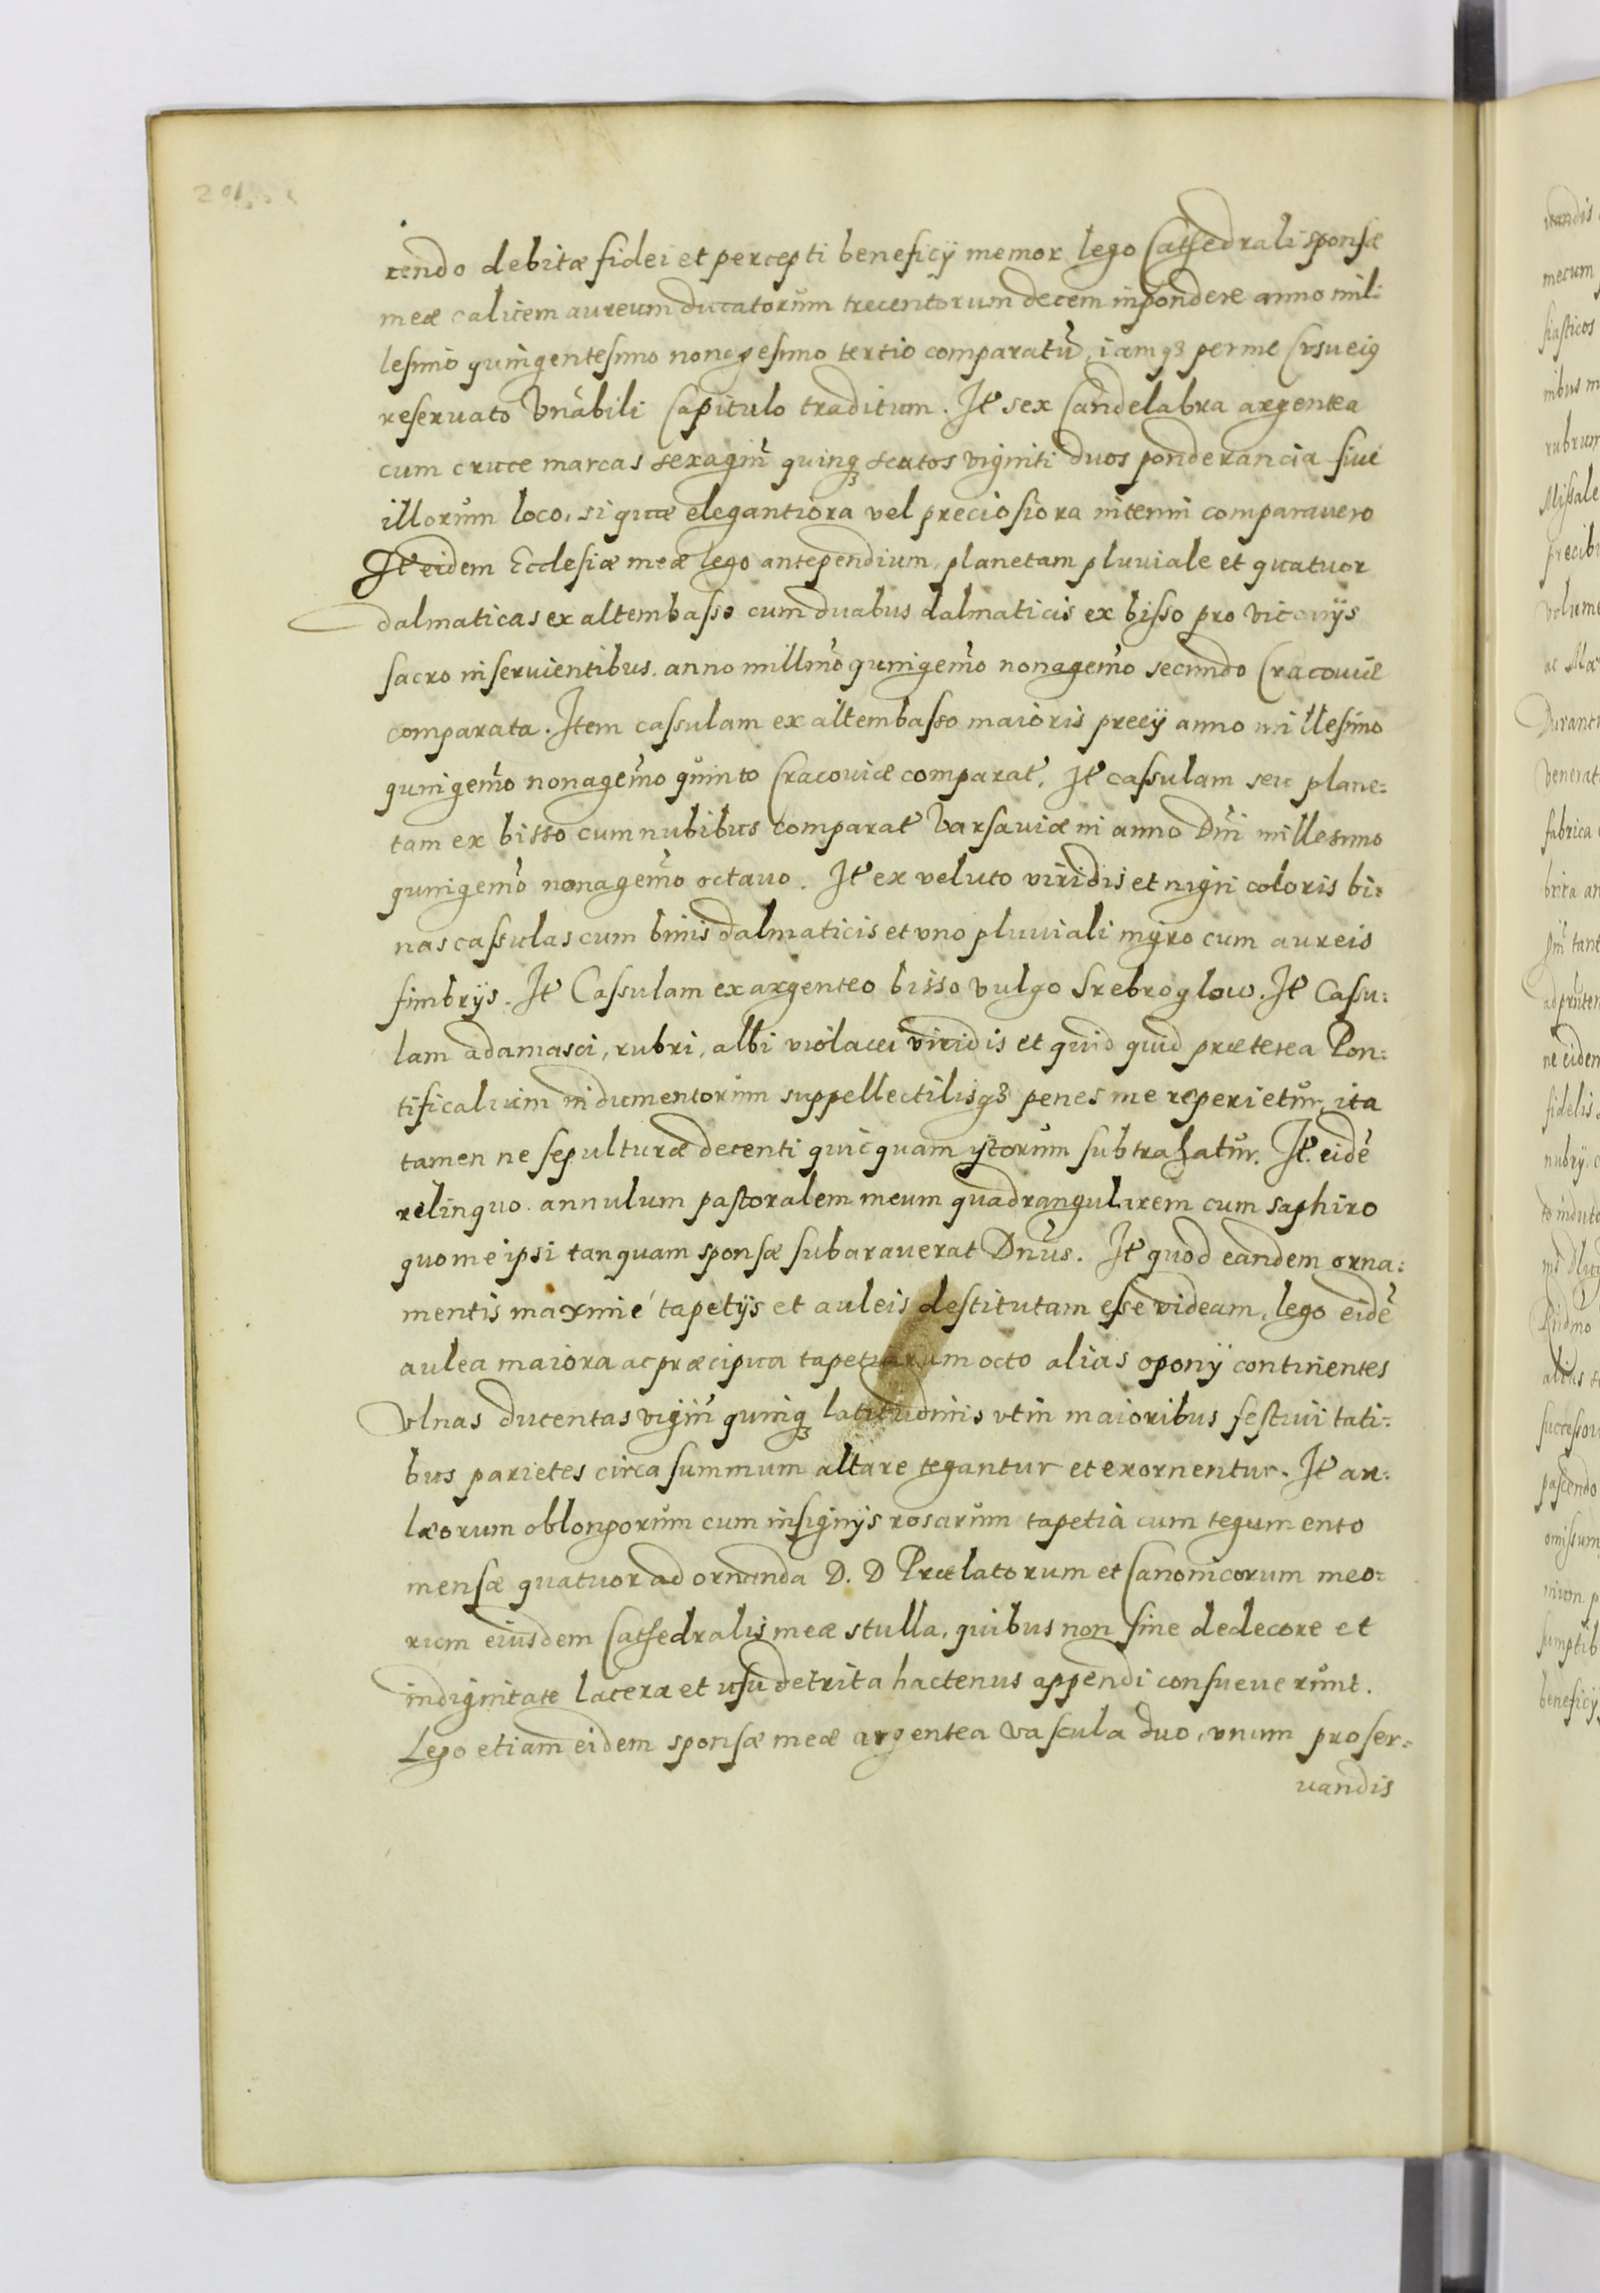 rendo debitæ fidei et percepti beneficÿ memor lego Cathedrali sponsæ
meæ calicem aureum ducatorum trecentorum decem in pondere anno mil:
lesimo quingentesimo nonagesimo tertio comparatū, iamq3 per me (vsu eiq
reseruato Vnābili Capitulo traditum. It sex Candelabra argentea
cum cruce marcas sexagin̄ quinq3 scatos viginti duos ponderancia siue
illorum loco, si quæ elegantiora vel preciosiora interim comparauero
It eidem Ecclesiæ meæ lego antependium, planetam pluuiale et quatuor
dalmaticas ex altembasso cum duabus dalmaticis ex bisso pro vicarÿs
sacro inseruientibus. anno millm̄o quingem̄o nonagem̄o secundo Cracouiæ
comparata. Item cassulam ex altembasso maioris precÿ anno millesimo
quingem̄o nonagem̄o quinto Cracouiæ comparat. It cassulam seu plane:
tam ex bisso cum nubibus comparat Varsauiæ in anno Dn̄i millesimo
quingem̄o nonagem̄o octauo. It ex veluto viridis et nigri coloris bi:
nas cassulas cum binis dalmaticis et vno pluuiali nigro cum aureis
fimbrÿs. It Cassulam ex argenteo bisso vulgo Srebroglow. It Cassu:
lam adamasci, rubri, albi violacei viridis et quid quid præterea Pon:
tificalium indumentorum suppellectilisq3 penes me reperietur, ita
tamen ne sepulturæ decenti quicquam ÿstorum subtrahatur. It. eidē
relinquo annulum pastoralem meum quadrangularem cum saphiro
quo me ipsi tanquam sponsæ subarauerat Dn̄us. It quod eandem orna:
mentis maximé tapetÿs et auleis destitutam esse videam, lego eidē
aulea maiora ac præcipua tapetiarum octo alias oponÿ continentes
vlnas ducentas vigin̄ quinq3 latitudinis vt in maioribus festiuitati:
bus parietes circa summum altare tegantur et exornentur. It au:
læorum oblongorum cum insignÿs rosarum tapetia cum tegumento
mensæ quatuor ad ornanda D. D Prælatorum et Canonicorum meo:
rum eiusdem Cathedralis meæ stulla, quibus non sine dedecore et
indignitate lacera et usu detrita hactenus appendi consueuerunt.
Lego etiam eidem sponsæ meæ argentea vascula duo, vnum pro ser:
uandis